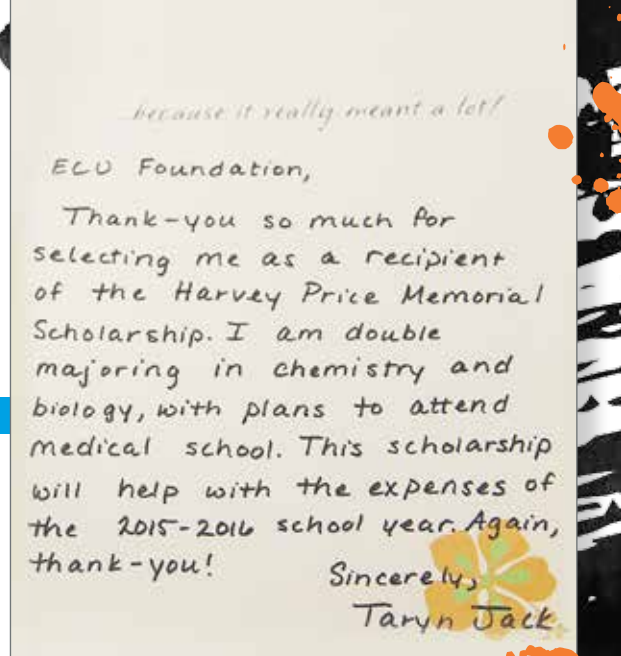 ...because it really meant a lot!
ECU Foundation,
Thank-you so much for
selecting me as a recipient
of the Harvey Price Memorial
Scholarship. I am double
majoring in chemistry and
biology, with plans to attend
medical school. This scholarship
will help with the expenses of
the 2015-2016 school year. Again,
thank-you!
Sincerely,
Taryn Jack